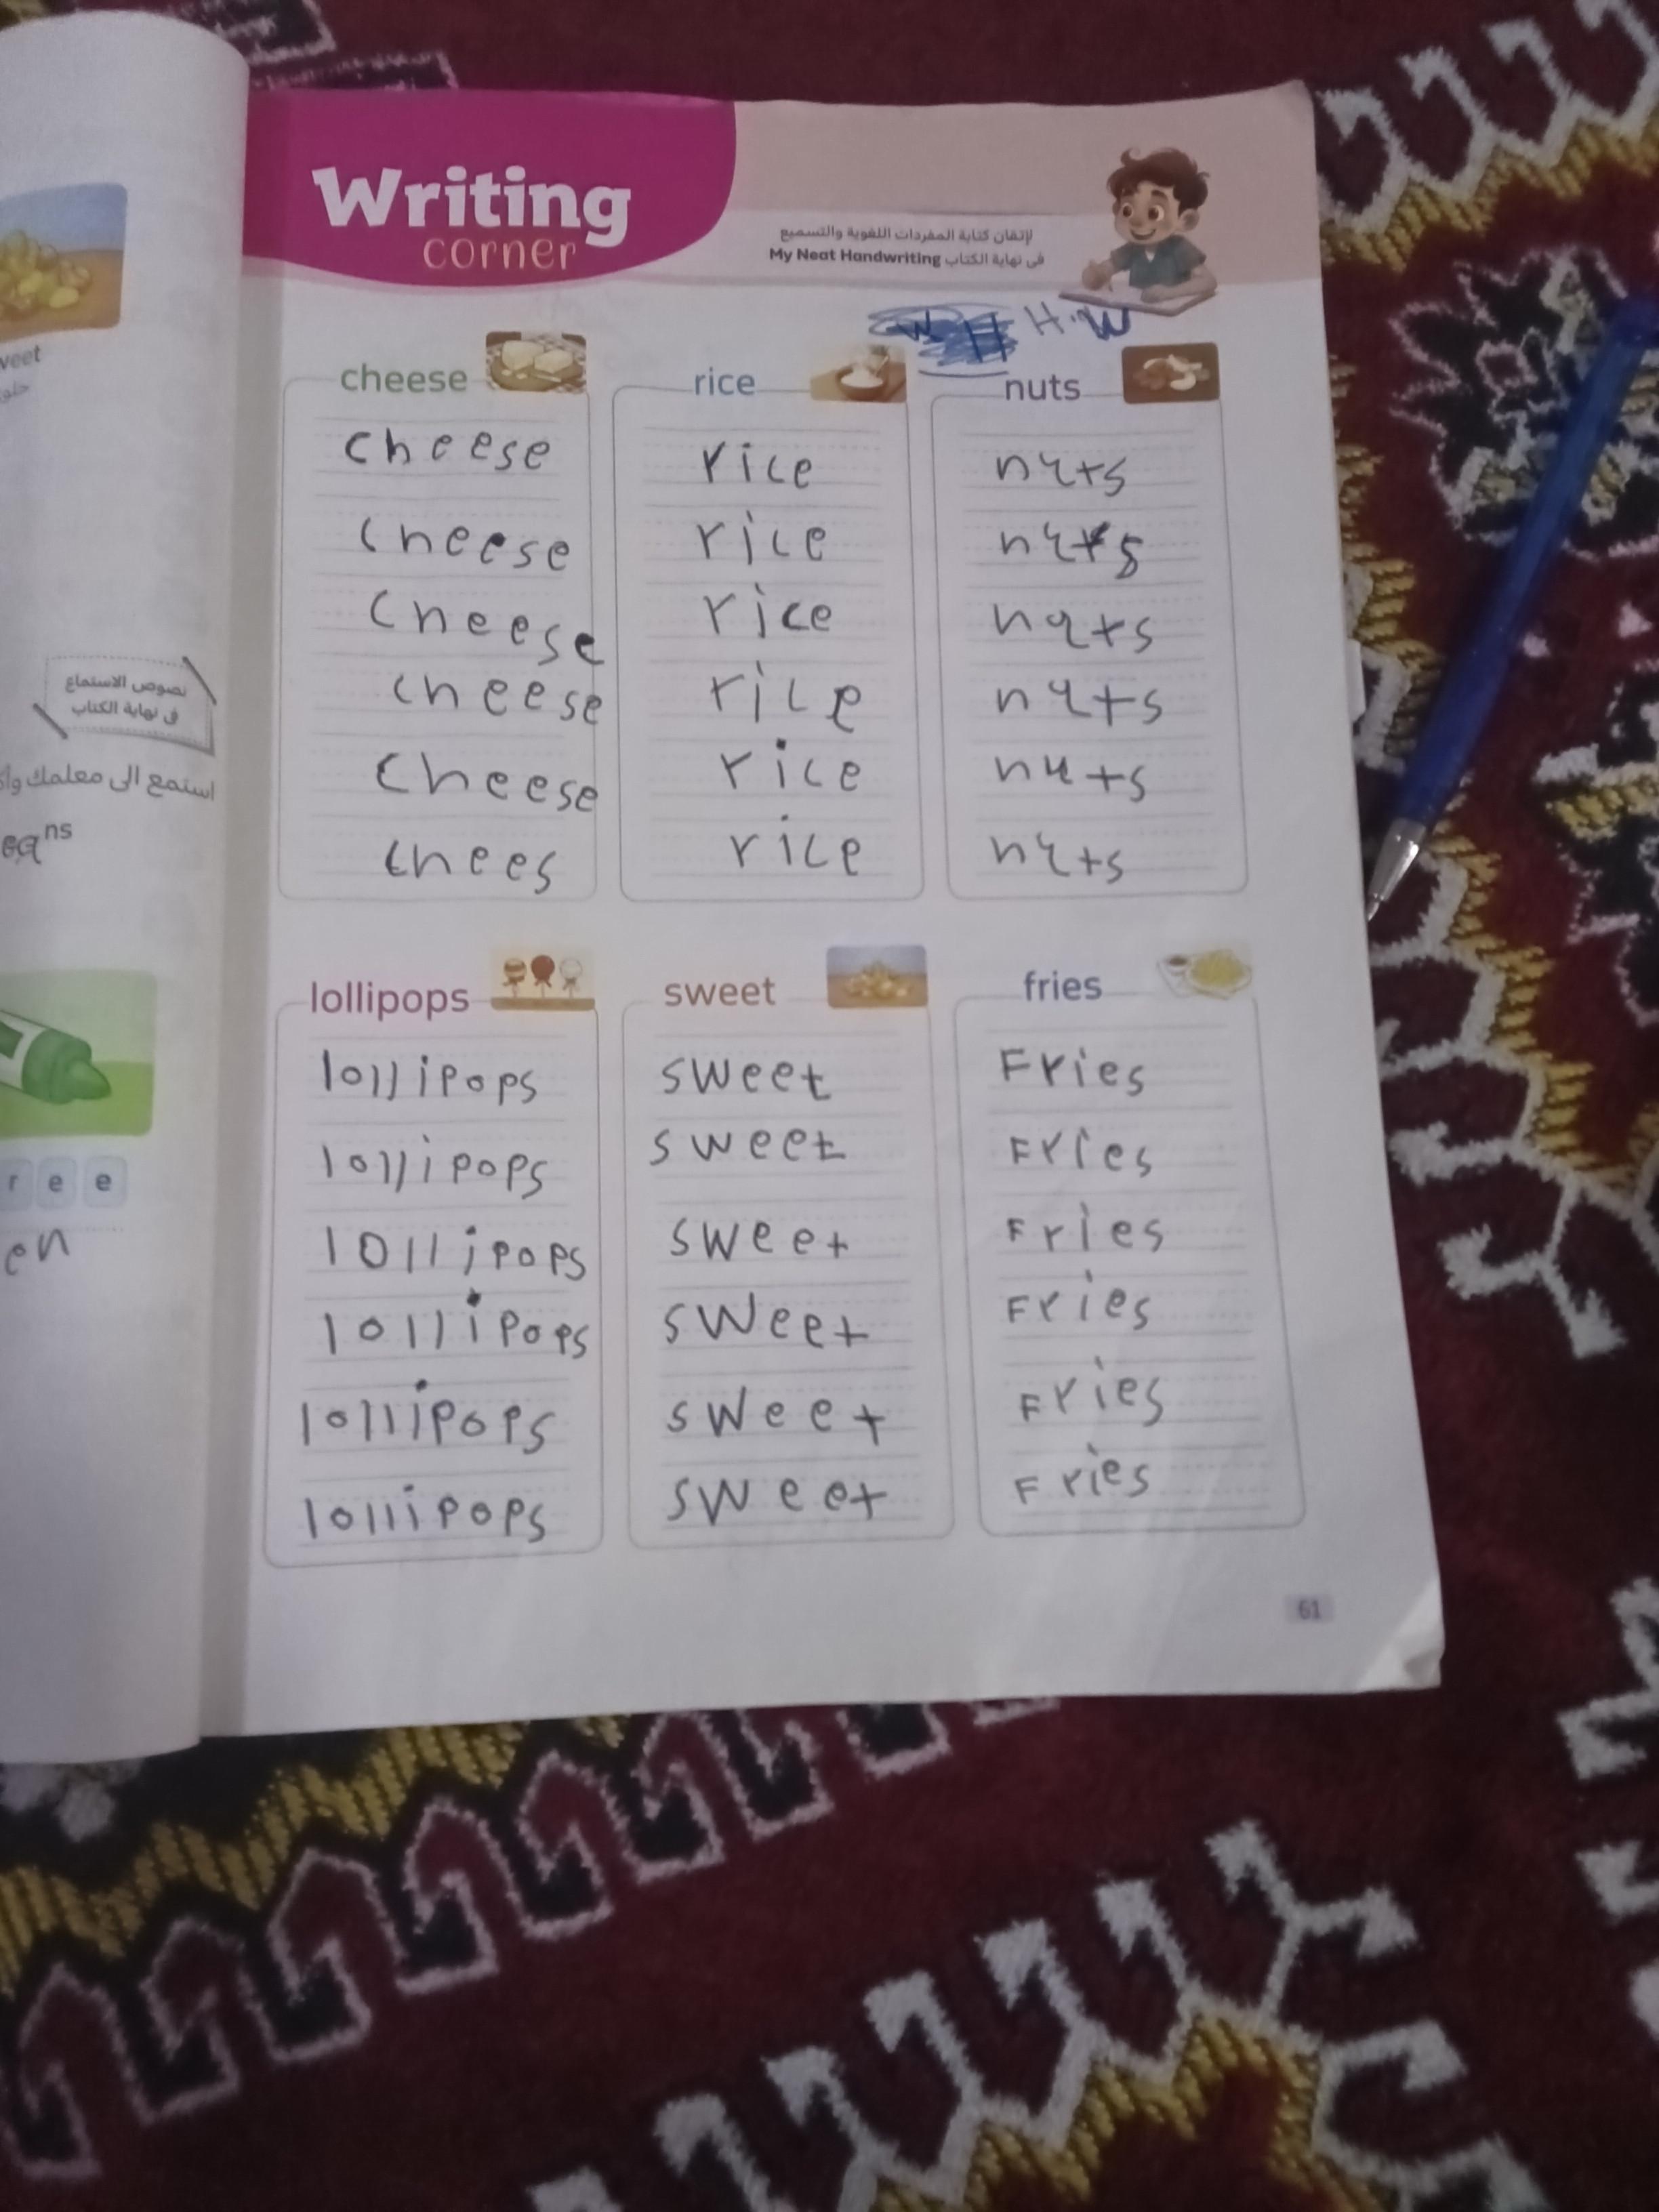 Writing
corner
لإتقان كتابة المفردات اللغوية والتسميع
فى نهاية الكتاب My Neat Handwriting
W H H.W
cheese
cheese
cheese
cheese
cheese
cheese
chees
rice
rice
rice
rice
rice
rice
rice
nuts
nuts
nuts
nuts
nuts
nuts
nuts
lollipops
lollipops
lollipops
lollipops
lollipops
lollipops
lollipops
sweet
sweet
sweet
sweet
sweet
sweet
sweet
fries
Fries
Fries
Fries
Fries
Fries
Fries
61
نصوص الاستماع
فى نهاية الكتاب
استمع الى معلمك
ns
r e e
en